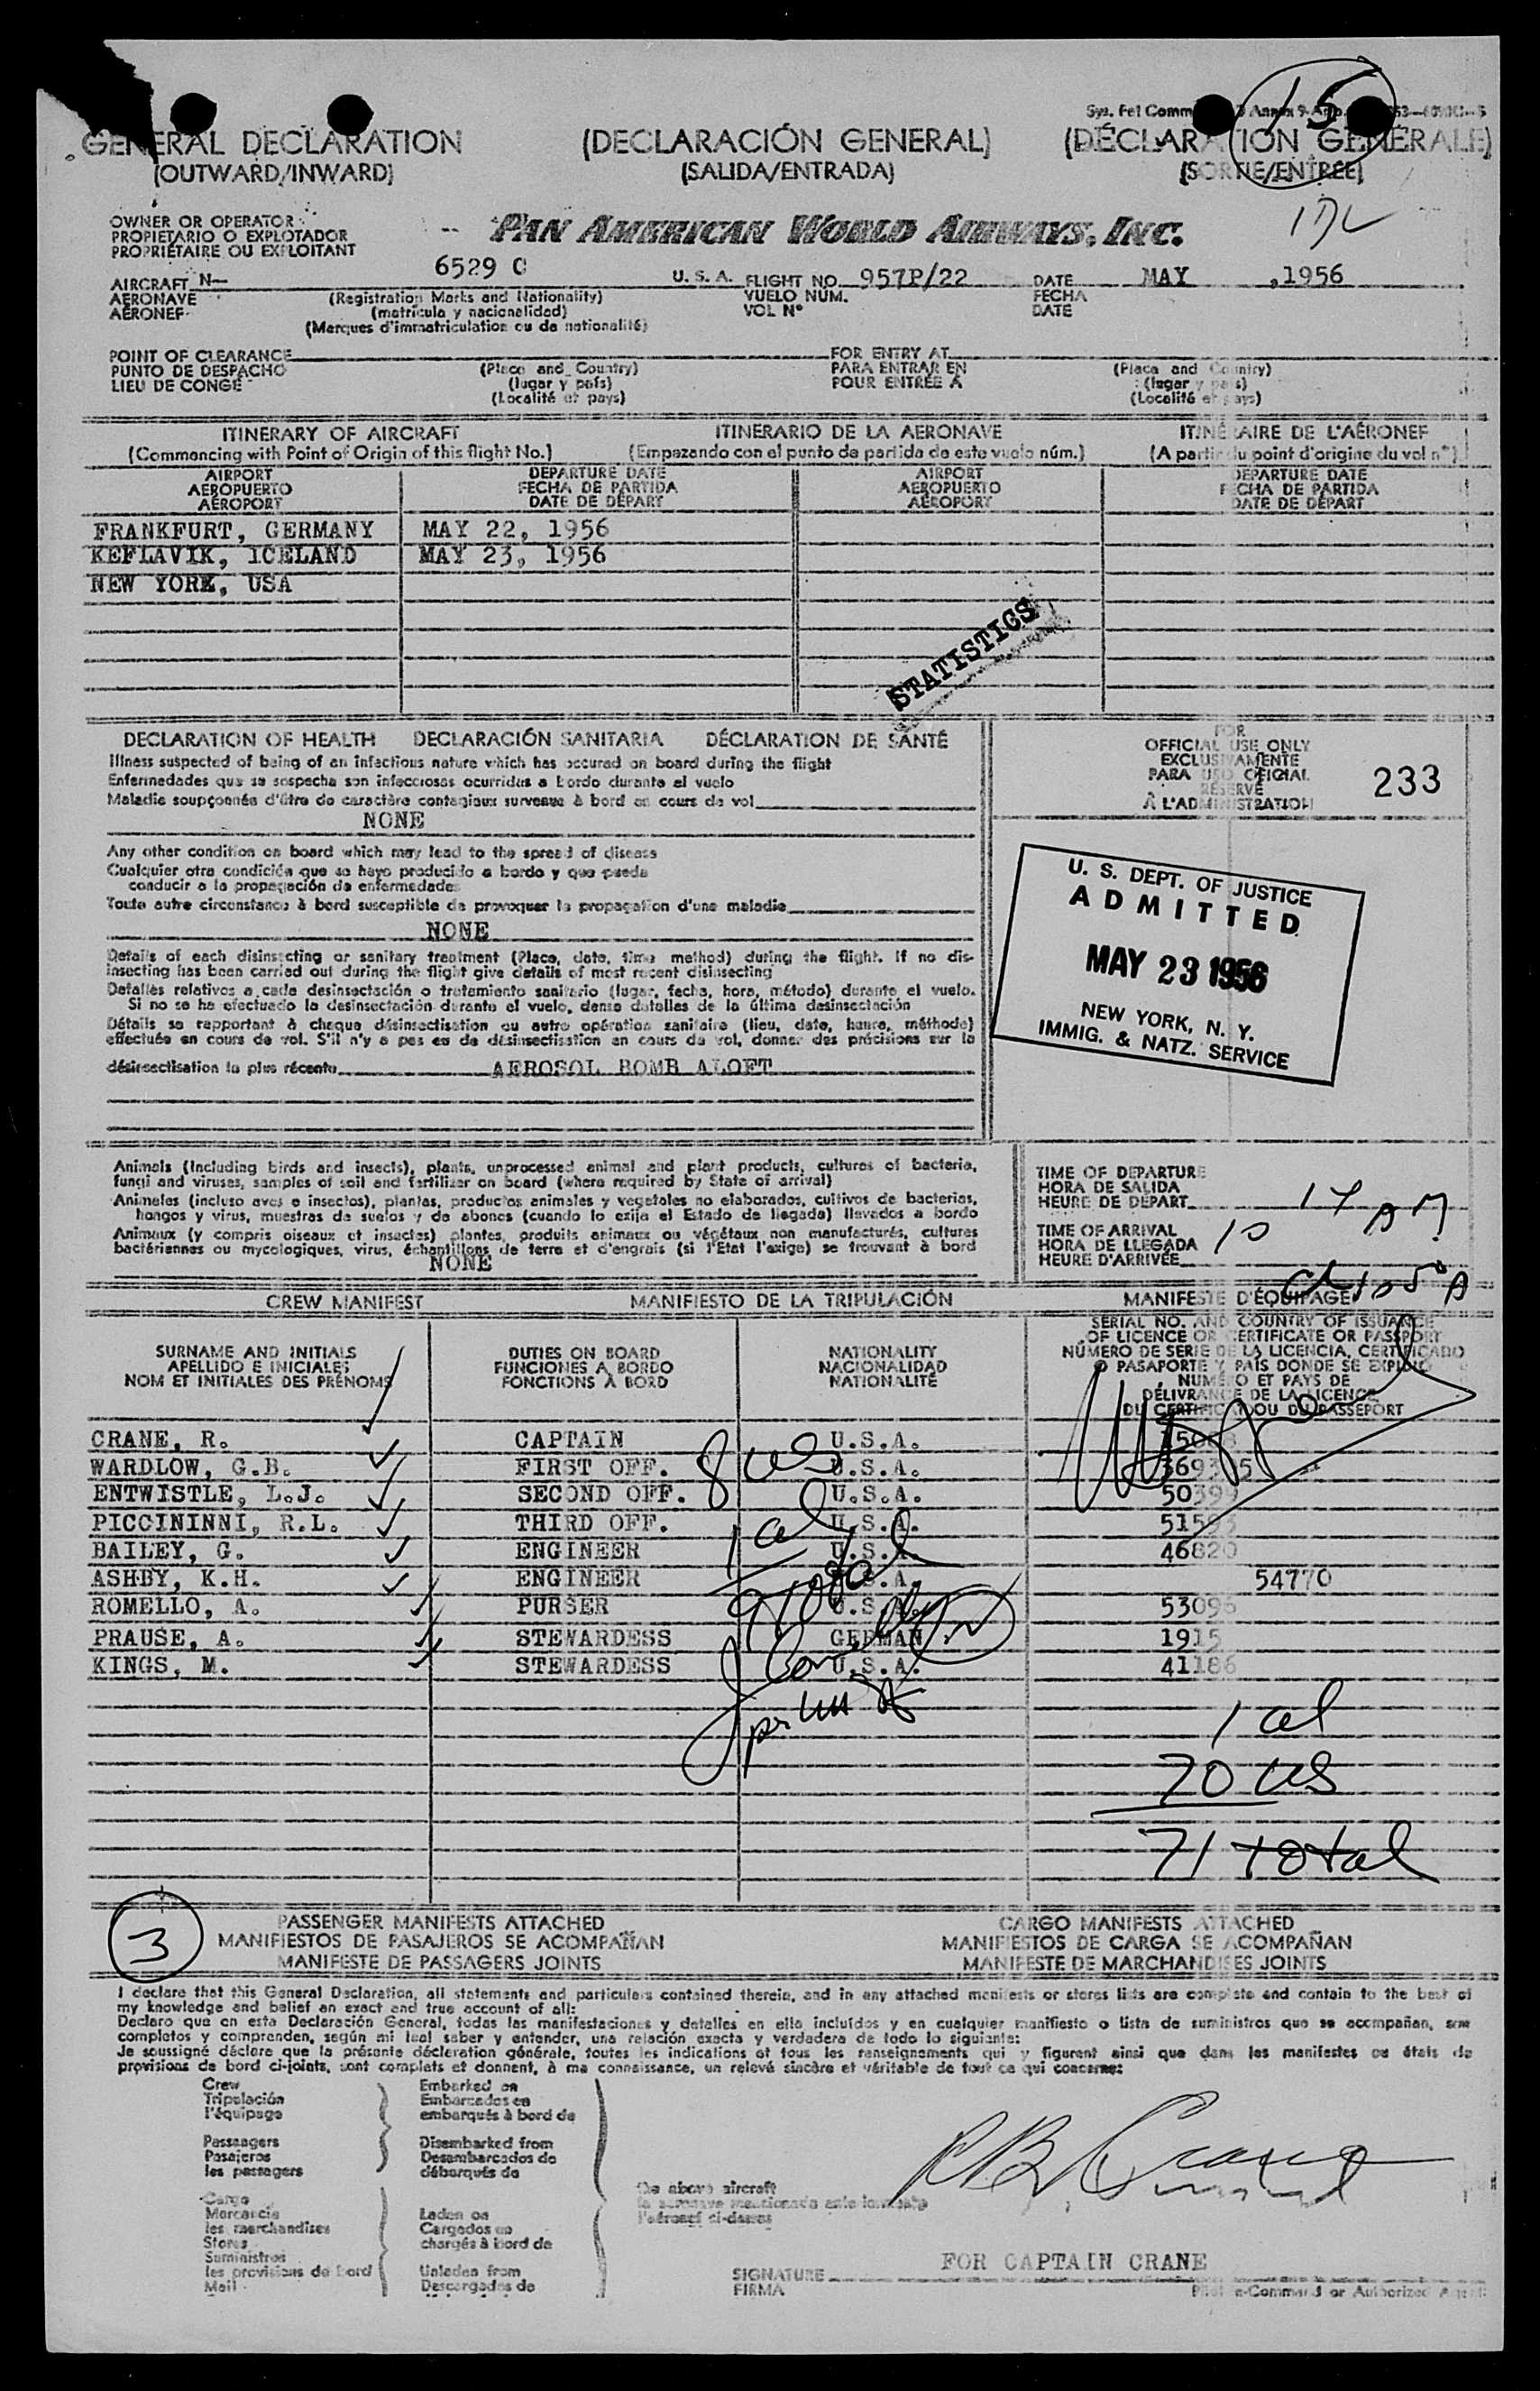 15
GENERAL DECLARATION (DECLARACIÓN GENERAL) (DÉCLARATION GÉNÉRALE)
(OUTWARD/INWARD) (SALIDA/ENTRADA) (SORTIE/ENTRÉE)
OWNER OR OPERATOR
PROPIETARIO O EXPLOTADOR
PROPRIÉTAIRE OU EXPLOITANT
PAN AMERICAN WORLD AIRWAYS, INC.
AIRCRAFT N— 6529 C U. S. A. FLIGHT NO. 957P/22 DATE MAY ,1956
AERONAVE (Registration Marks and Nationality) VUELO NÚM. FECHA
AÉRONEF (matrícula y nacionalidad) VOL N° DATE
(Marques d'immatriculation ou de nationalité)
POINT OF CLEARANCE FOR ENTRY AT
PUNTO DE DESPACHO (Place and Country) PARA ENTRAR EN (Place and Country)
LIEU DE CONGÉ (lugar y país) POUR ENTRÉE À (lugar y país)
(Localité et pays) (Localité et pays)
ITINERARY OF AIRCRAFT ITINERARIO DE LA AERONAVE ITINÉRAIRE DE L'AÉRONEF
(Commencing with Point of Origin of this flight No.) (Empezando con el punto de partida de este vuelo núm.) (A partir du point d'origine du vol n°)
AIRPORT DEPARTURE DATE AIRPORT DEPARTURE DATE
AEROPUERTO FECHA DE PARTIDA AEROPUERTO FECHA DE PARTIDA
AÉROPORT DATE DE DÉPART AÉROPORT DATE DE DÉPART
FRANKFURT, GERMANY MAY 22, 1956
KEFLAVIK, ICELAND MAY 23, 1956
NEW YORK, USA
STATISTICS
DECLARATION OF HEALTH DECLARACIÓN SANITARIA DÉCLARATION DE SANTÉ
Illness suspected of being of an infectious nature which has occured on board during the flight
Enfermedades que se sospecha son infecciosas ocurridas a bordo durante el vuelo
Maladie soupçonnée d'être de caractère contagieux survenue à bord en cours de vol
NONE
Any other condition on board which may lead to the spread of disease
Cualquier otra condición que se haya producido a bordo y que pueda
conducir a la propagación de enfermedades
Toute autre circonstance à bord susceptible de provoquer la propagation d'une maladie
NONE
Details of each disinsecting or sanitary treatment (Place, date, time method) during the flight. If no dis-
insecting has been carried out during the flight give details of most recent disinsecting
Detalles relativos a cada desinsectación o tratamiento sanitario (lugar, fecha, hora, método) durante el vuelo.
Si no se ha efectuado la desinsectación durante el vuelo, dense detalles de la última desinsectación
Détails se rapportant à chaque désinsectisation ou autre opération sanitaire (lieu, date, heure, méthode)
effectuée en cours de vol. S'il n'y a pas eu de désinsectisation en cours de vol, donner des précisions sur la
désinsectisation la plus récente AEROSOL BOMB ALOFT
FOR
OFFICIAL USE ONLY
EXCLUSIVAMENTE
PARA USO OFICIAL 233
RÉSERVÉ
À L'ADMINISTRATION
U. S. DEPT. OF JUSTICE
ADMITTED
MAY 23 1956
NEW YORK, N. Y.
IMMIG. & NATZ. SERVICE
Animals (Including birds and insects), plants, unprocessed animal and plant products, cultures of bacteria,
fungi and viruses, samples of soil and fertilizer on board (where required by State of arrival)
Animales (incluso aves e insectos), plantas, productos animales y vegetales no elaborados, cultivos de bacterias,
hongos y virus, muestras de suelos y de abonos (cuando lo exija el Estado de llegada) llevados a bordo
Animaux (y compris oiseaux et insectes) plantes, produits animaux ou végétaux non manufacturés, cultures
bactériennes ou mycologiques, virus, échantillons de terre et d'engrais (si l'Etat l'exige) se trouvant à bord
NONE
TIME OF DEPARTURE
HORA DE SALIDA
HEURE DE DÉPART
TIME OF ARRIVAL
HORA DE LLEGADA
HEURE D'ARRIVÉE
CREW MANIFEST MANIFIESTO DE LA TRIPULACIÓN MANIFESTE D'ÉQUIPAGE
SURNAME AND INITIALS DUTIES ON BOARD NATIONALITY
APELLIDO E INICIALES FUNCIONES A BORDO NACIONALIDAD
NOM ET INITIALES DES PRÉNOMS FONCTIONS À BORD NATIONALITÉ
SERIAL NO. AND COUNTRY OF ISSUANCE
OF LICENCE OR CERTIFICATE OR PASSPORT
NÚMERO DE SERIE DE LA LICENCIA, CERTIFICADO
O PASAPORTE Y PAÍS DONDE SE EXPIDIÓ
NUMÉRO ET PAYS DE
DÉLIVRANCE DE LA LICENCE
DU CERTIFICAT OU DU PASSEPORT
CRANE, R. CAPTAIN U.S.A.
WARDLOW, G.B. FIRST OFF. U.S.A.
ENTWISTLE, L.J. SECOND OFF. U.S.A. 50399
PICCININNI, R.L. THIRD OFF. U.S.A.
BAILEY, G. ENGINEER U.S.A. 46820
ASHBY, K.H. ENGINEER U.S.A. 54770
ROMELLO, A. PURSER U.S.A. 53096
PRAUSE, A. STEWARDESS GERMAN 1915
KINGS, M. STEWARDESS U.S.A. 41186
8 US
1 al
9 total
1 al
70 US
71 total
3
PASSENGER MANIFESTS ATTACHED CARGO MANIFESTS ATTACHED
MANIFIESTOS DE PASAJEROS SE ACOMPAÑAN MANIFIESTOS DE CARGA SE ACOMPAÑAN
MANIFESTE DE PASSAGERS JOINTS MANIFESTE DE MARCHANDISES JOINTS
I declare that this General Declaration, all statements and particulars contained therein, and in any attached manifests or stores lists are complete and contain to the best of
my knowledge and belief an exact and true account of all:
Declaro que en esta Declaración General, todas las manifestaciones y detalles en ella incluídos y en cualquier manifiesto o lista de suministros que se acompañan, son
completos y comprenden, según mi leal saber y entender, una relación exacta y verdadera de todo lo siguiente:
Je soussigné déclare que la présente déclaration générale, toutes les indications et tous les renseignements qui y figurent ainsi que dans les manifestes ou états de
provisions de bord ci-joints, sont complets et donnent, à ma connaissance, un relevé sincère et véritable de tout ce qui concerne:
Crew Embarked on
Tripulación Embarcados en
l'équipage embarqués à bord de
Passengers Disembarked from
Pasajeros Desembarcados de
les passagers débarqués de
Cargo
Mercancía Laden on
les marchandises Cargados en
Stores chargés à bord de
Suministros
les provisions de bord Unladen from
Mail Descargados de
the above aircraft
la aeronave mencionada anteriormente
l'aéronef ci-dessus
RB Crane
FOR CAPTAIN CRANE
SIGNATURE
FIRMA
Pilot-in-Command or Authorized Agent